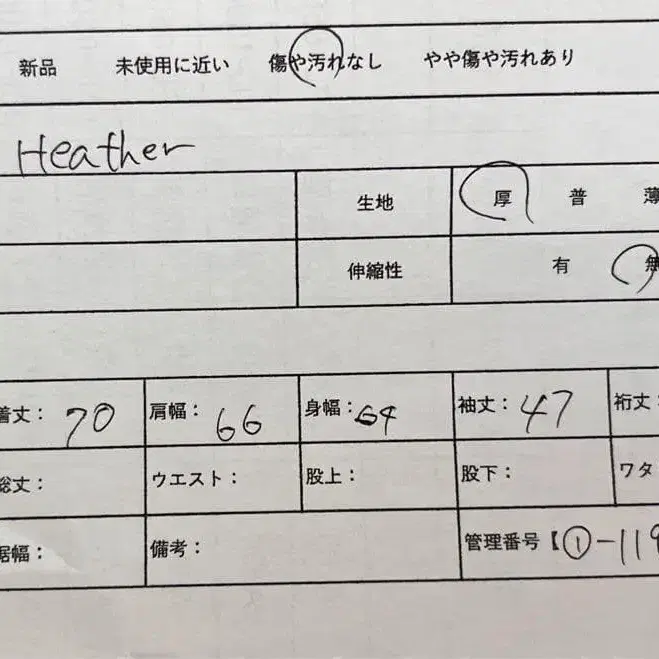 新品 未使用に近い 傷や汚れなし やや傷や汚れあり
Heather
生地 厚 普 薄
伸縮性 有 無
着丈: 70 肩幅: 66 身幅: 64 袖丈: 47 裄丈:
総丈: ウエスト: 股上: 股下: ワタ
裾幅: 備考: 管理番号【①-119